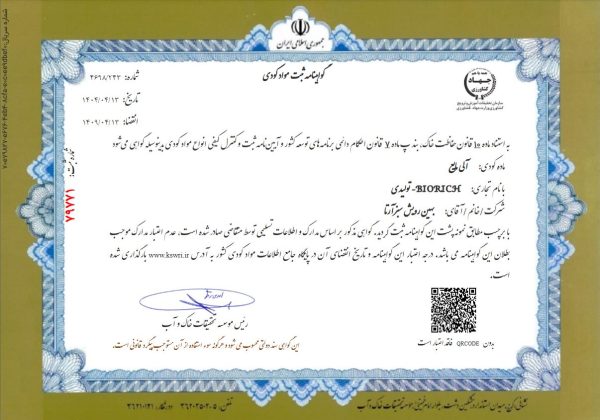 جمهوری اسلامی ایران
گواهینامه ثبت مواد کودی
شماره: ۳۶۹۸/۲۳۳
تاریخ: ۱۴۰۴/۰۴/۱۳
انقضاء: ۱۴۰۹/۰۴/۱۳
همه با هم
جهاد
کشاورزی
سازمان تحقیقات، آموزش و ترویج کشاورزی
به استناد ماده ۱۰ قانون حفاظت خاک، بند پ ماده ۷ قانون احکام دائمی برنامه‌های توسعه کشور و آیین‌نامه ثبت و کنترل کیفی انواع مواد کودی بدینوسیله گواهی می‌شود
ماده کودی: آلی مایع
با نام تجاری: BIORICH-تولیدی
شرکت/ خانم / آقای: بهین رویش سبز آرتا
با برچسب مطابق نمونه پشت این گواهینامه ثبت گردید. گواهی مذکور بر اساس مدارک و اطلاعات تسلیمی توسط متقاضی صادر شده است، عدم اعتبار مدارک موجب
بطلان این گواهینامه می باشد. درجه اعتبار این گواهینامه و تاریخ انقضای آن در پایگاه جامع اطلاعات مواد کودی کشور به آدرس www.kswri.ir بارگذاری شده
است.
شماره ثبت: ۷۹۷۷۱
رئیس موسسه تحقیقات خاک و آب
بدون QRCODE فاقد اعتبار است
این گواهی سند دولتی محسوب می شود و هرگونه سوء استفاده از آن مستوجب پیگرد قانونی است.